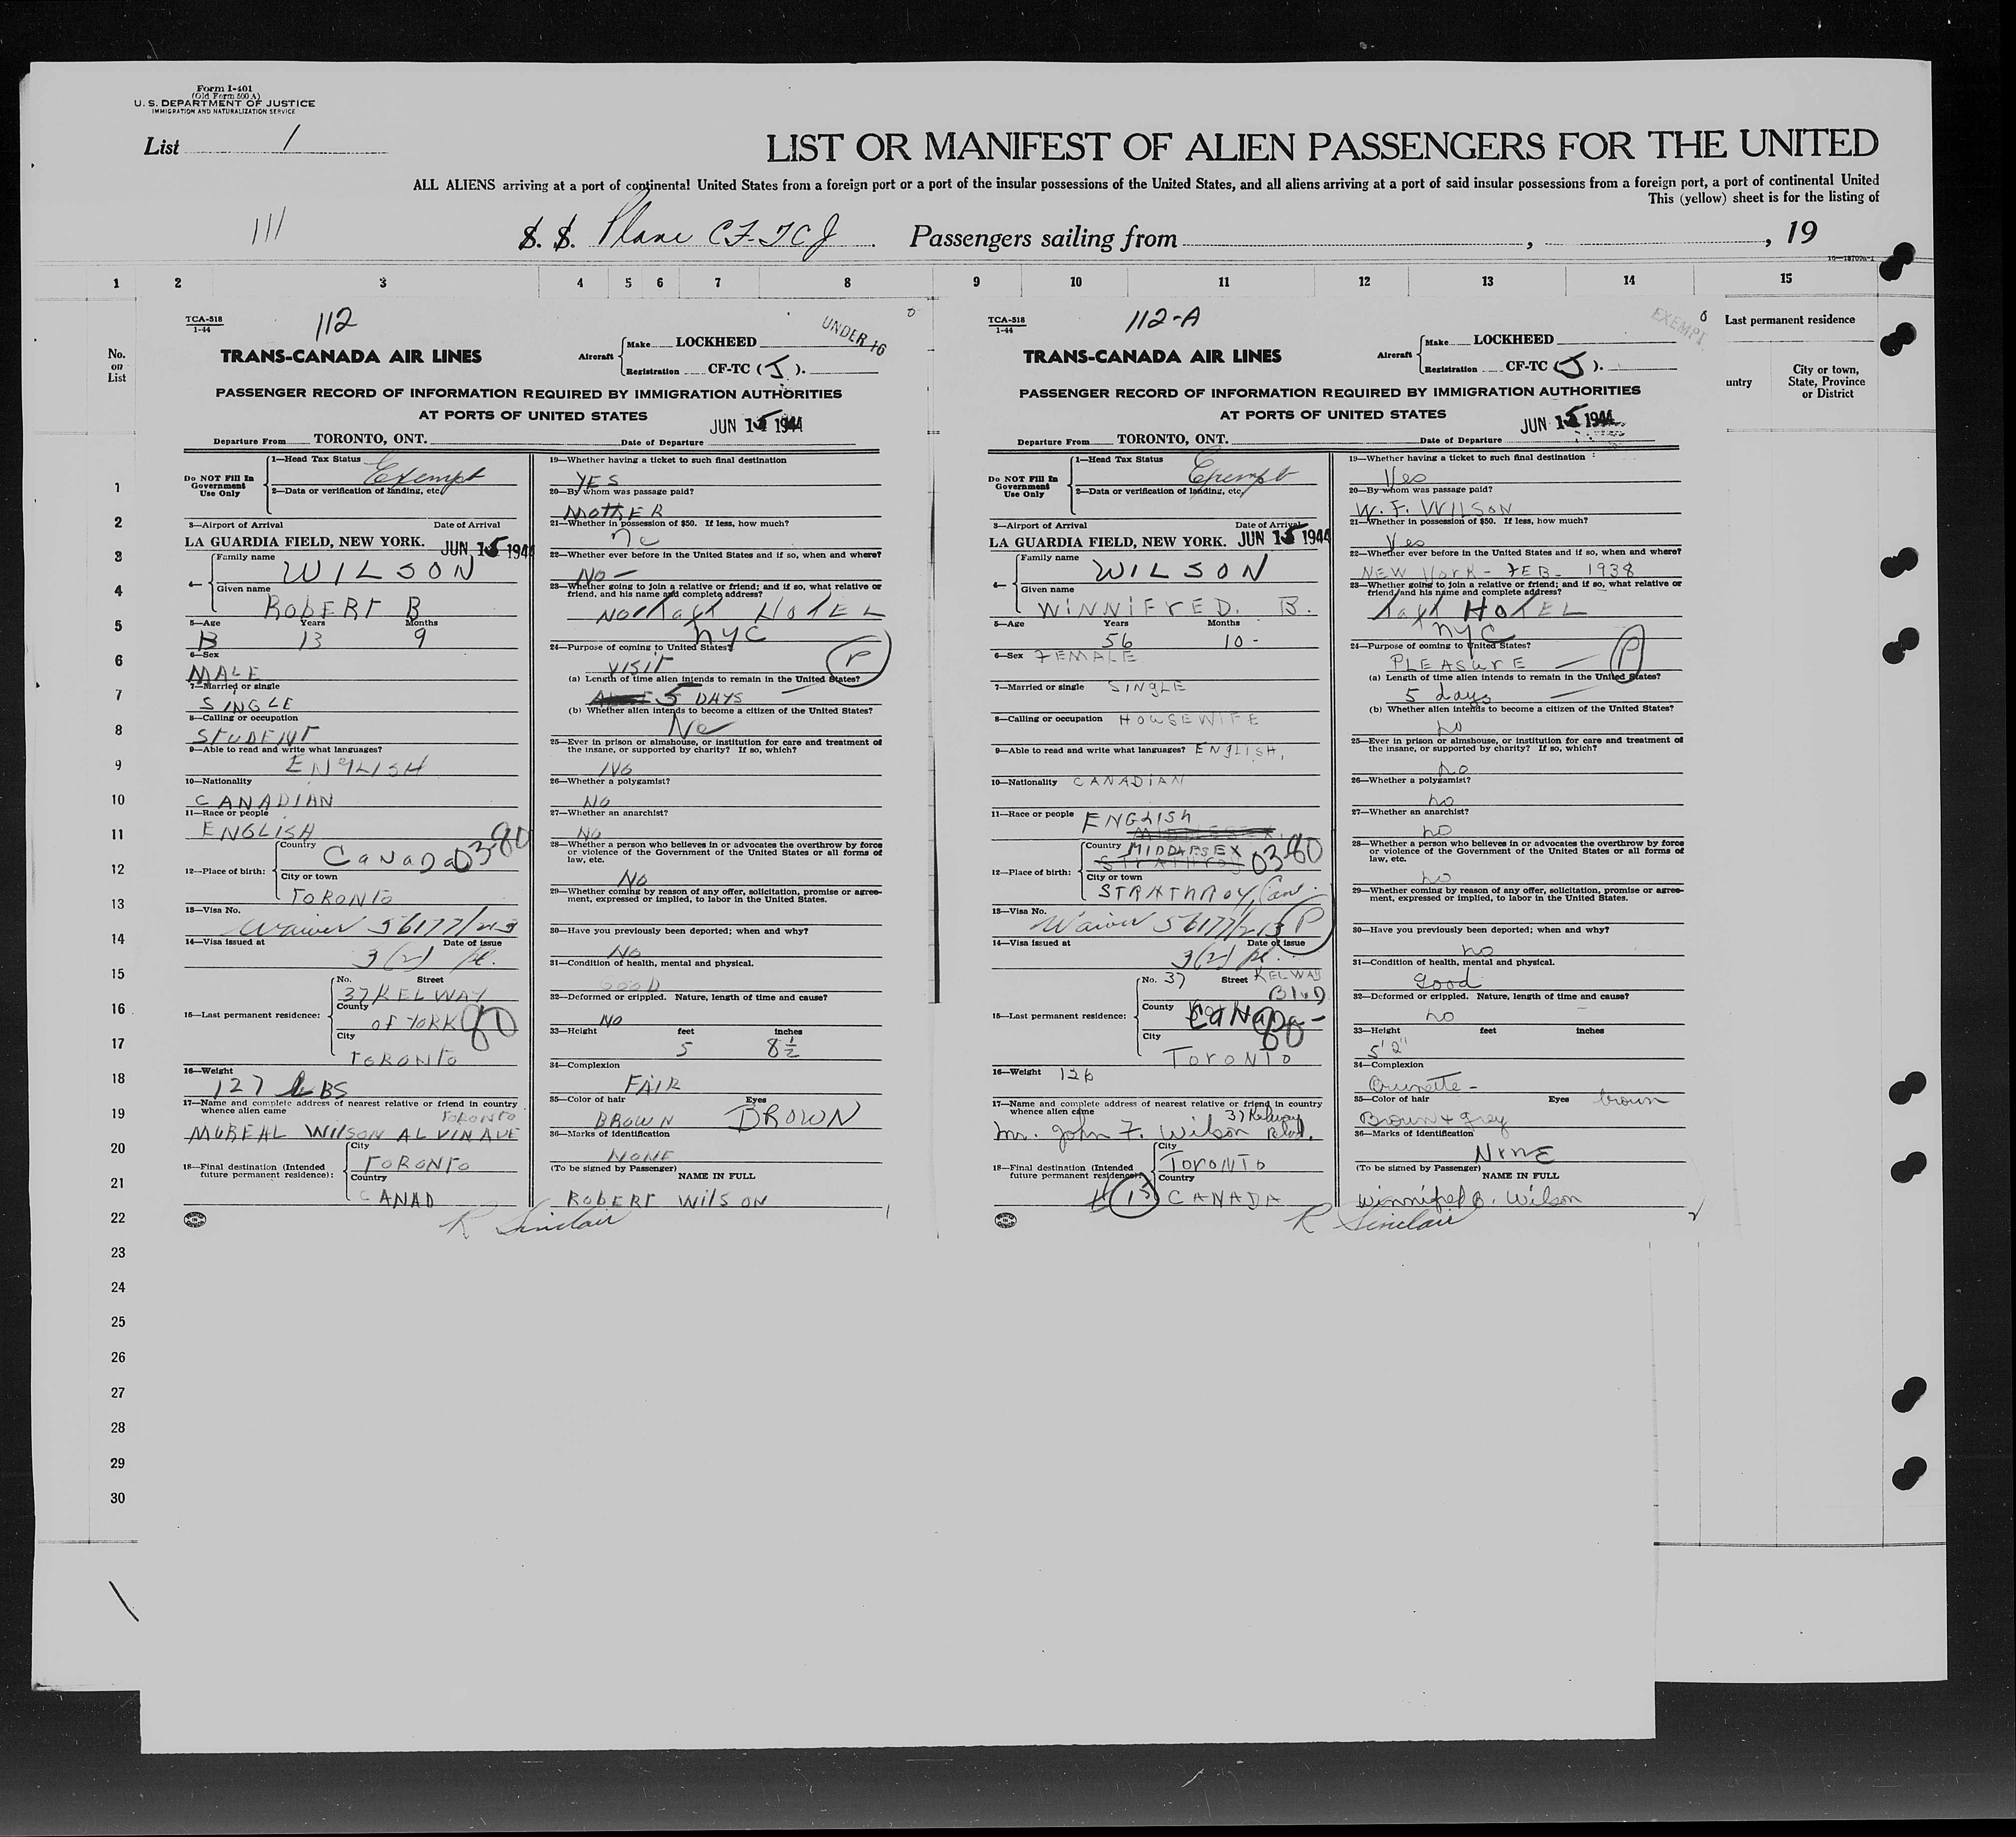 Form I-401
(Old Form 500 A)
U. S. DEPARTMENT OF JUSTICE
IMMIGRATION AND NATURALIZATION SERVICE
List 1
LIST OR MANIFEST OF ALIEN PASSENGERS FOR THE UNITED
ALL ALIENS arriving at a port of continental United States from a foreign port or a port of the insular possessions of the United States, and all aliens arriving at a port of said insular possessions from a foreign port, a port of continental United
This (yellow) sheet is for the listing of
111
S. S. Plane CF-TCJ. Passengers sailing from , , 19
1 2 3 4 5 6 7 8 9 10 11 12 13 14 15
No. on List
Last permanent residence
untry
City or town, State, Province or District
1
2
3
4
5
6
7
8
9
10
11
12
13
14
15
16
17
18
19
20
21
22
23
24
25
26
27
28
29
30
TCA-518
1-44
112
UNDER 16
TRANS-CANADA AIR LINES
Aircraft Make LOCKHEED
Registration CF-TC (J).
PASSENGER RECORD OF INFORMATION REQUIRED BY IMMIGRATION AUTHORITIES
AT PORTS OF UNITED STATES
JUN 15 1944
Departure From TORONTO, ONT. Date of Departure
Do NOT Fill In Government Use Only
1—Head Tax Status
Exempt
2—Data or verification of landing, etc.
3—Airport of Arrival Date of Arrival
LA GUARDIA FIELD, NEW YORK. JUN 15 1944
4— Family name
WILSON
Given name
ROBERT B
5—Age Years Months
B 13 9
6—Sex
MALE
7—Married or single
SINGLE
8—Calling or occupation
STUDENT
9—Able to read and write what languages?
ENGLISH
10—Nationality
CANADIAN
11—Race or people
ENGLISH
12—Place of birth: Country
Canada 03-80
City or town
TORONTO
13—Visa No.
Waiver 56177/213
14—Visa issued at Date of issue
3(2) pl.
15—Last permanent residence: No. Street
37 KELWAY
County
OF YORK 80
City
TORONTO
16—Weight
127 LBS
17—Name and complete address of nearest relative or friend in country whence alien came
TORONTO
MUREAL WILSON ALVIN AVE
18—Final destination (Intended future permanent residence): City
TORONTO
Country
CANAD
19—Whether having a ticket to such final destination
YES
20—By whom was passage paid?
MOTHER
21—Whether in possession of $50. If less, how much?
no
22—Whether ever before in the United States and if so, when and where?
NO —
23—Whether going to join a relative or friend; and if so, what relative or friend, and his name and complete address?
NO Taft HOTEL
NYC
24—Purpose of coming to United States?
VISIT P
(a) Length of time alien intends to remain in the United States?
5 DAYS
(b) Whether alien intends to become a citizen of the United States?
No
25—Ever in prison or almshouse, or institution for care and treatment of the insane, or supported by charity? If so, which?
NO
26—Whether a polygamist?
NO
27—Whether an anarchist?
NO
28—Whether a person who believes in or advocates the overthrow by force or violence of the Government of the United States or all forms of law, etc.
NO
29—Whether coming by reason of any offer, solicitation, promise or agreement, expressed or implied, to labor in the United States.
30—Have you previously been deported; when and why?
NO
31—Condition of health, mental and physical.
GOOD
32—Deformed or crippled. Nature, length of time and cause?
NO
33—Height feet inches
5 8½
34—Complexion
FAIR
35—Color of hair Eyes
BROWN BROWN
36—Marks of identification
NONE
(To be signed by Passenger) NAME IN FULL
ROBERT WILSON
R Sinclair
TCA-518
1-44
112-A
EXEMPT
TRANS-CANADA AIR LINES
Aircraft Make LOCKHEED
Registration CF-TC (J).
PASSENGER RECORD OF INFORMATION REQUIRED BY IMMIGRATION AUTHORITIES
AT PORTS OF UNITED STATES
JUN 15 1944
Departure From TORONTO, ONT. Date of Departure
Do NOT Fill In Government Use Only
1—Head Tax Status
Exempt
2—Data or verification of landing, etc.
3—Airport of Arrival Date of Arrival
LA GUARDIA FIELD, NEW YORK. JUN 15 1944
4— Family name
WILSON
Given name
WINNIFRED. B.
5—Age Years Months
56 10-
6—Sex FEMALE
7—Married or single SINGLE
8—Calling or occupation HOUSEWIFE
9—Able to read and write what languages? ENGLISH,
10—Nationality CANADIAN
11—Race or people ENGLISH
12—Place of birth: Country MIDDLESEX
STRATHROY 03-80
City or town
STRATHROY, Can.
13—Visa No.
Waiver 56177/213 P
14—Visa issued at Date of issue
3(2) pl.
15—Last permanent residence: No. 37 Street KELWAY
BLVD
County
CANADA- 80
City
TORONTO
16—Weight 126
17—Name and complete address of nearest relative or friend in country whence alien came
37 Kelway
Mr. John F. Wilson Blvd.
18—Final destination (Intended future permanent residence): City
TORONTO
Country
15 CANADA
19—Whether having a ticket to such final destination
Yes
20—By whom was passage paid?
W. F. WILSON
21—Whether in possession of $50. If less, how much?
Yes
22—Whether ever before in the United States and if so, when and where?
NEW York - FEB - 1938
23—Whether going to join a relative or friend; and if so, what relative or friend, and his name and complete address?
Taft HOTEL
NYC
24—Purpose of coming to United States?
PLEASURE — P
(a) Length of time alien intends to remain in the United States?
5 days
(b) Whether alien intends to become a citizen of the United States?
no
25—Ever in prison or almshouse, or institution for care and treatment of the insane, or supported by charity? If so, which?
no
26—Whether a polygamist?
no
27—Whether an anarchist?
no
28—Whether a person who believes in or advocates the overthrow by force or violence of the Government of the United States or all forms of law, etc.
no
29—Whether coming by reason of any offer, solicitation, promise or agreement, expressed or implied, to labor in the United States.
30—Have you previously been deported; when and why?
no
31—Condition of health, mental and physical.
good
32—Deformed or crippled. Nature, length of time and cause?
no
33—Height feet inches
5'2"
34—Complexion
Brunette -
35—Color of hair Eyes brown
Brown + grey
36—Marks of identification
NONE
(To be signed by Passenger) NAME IN FULL
Winnifred B. Wilson
R Sinclair